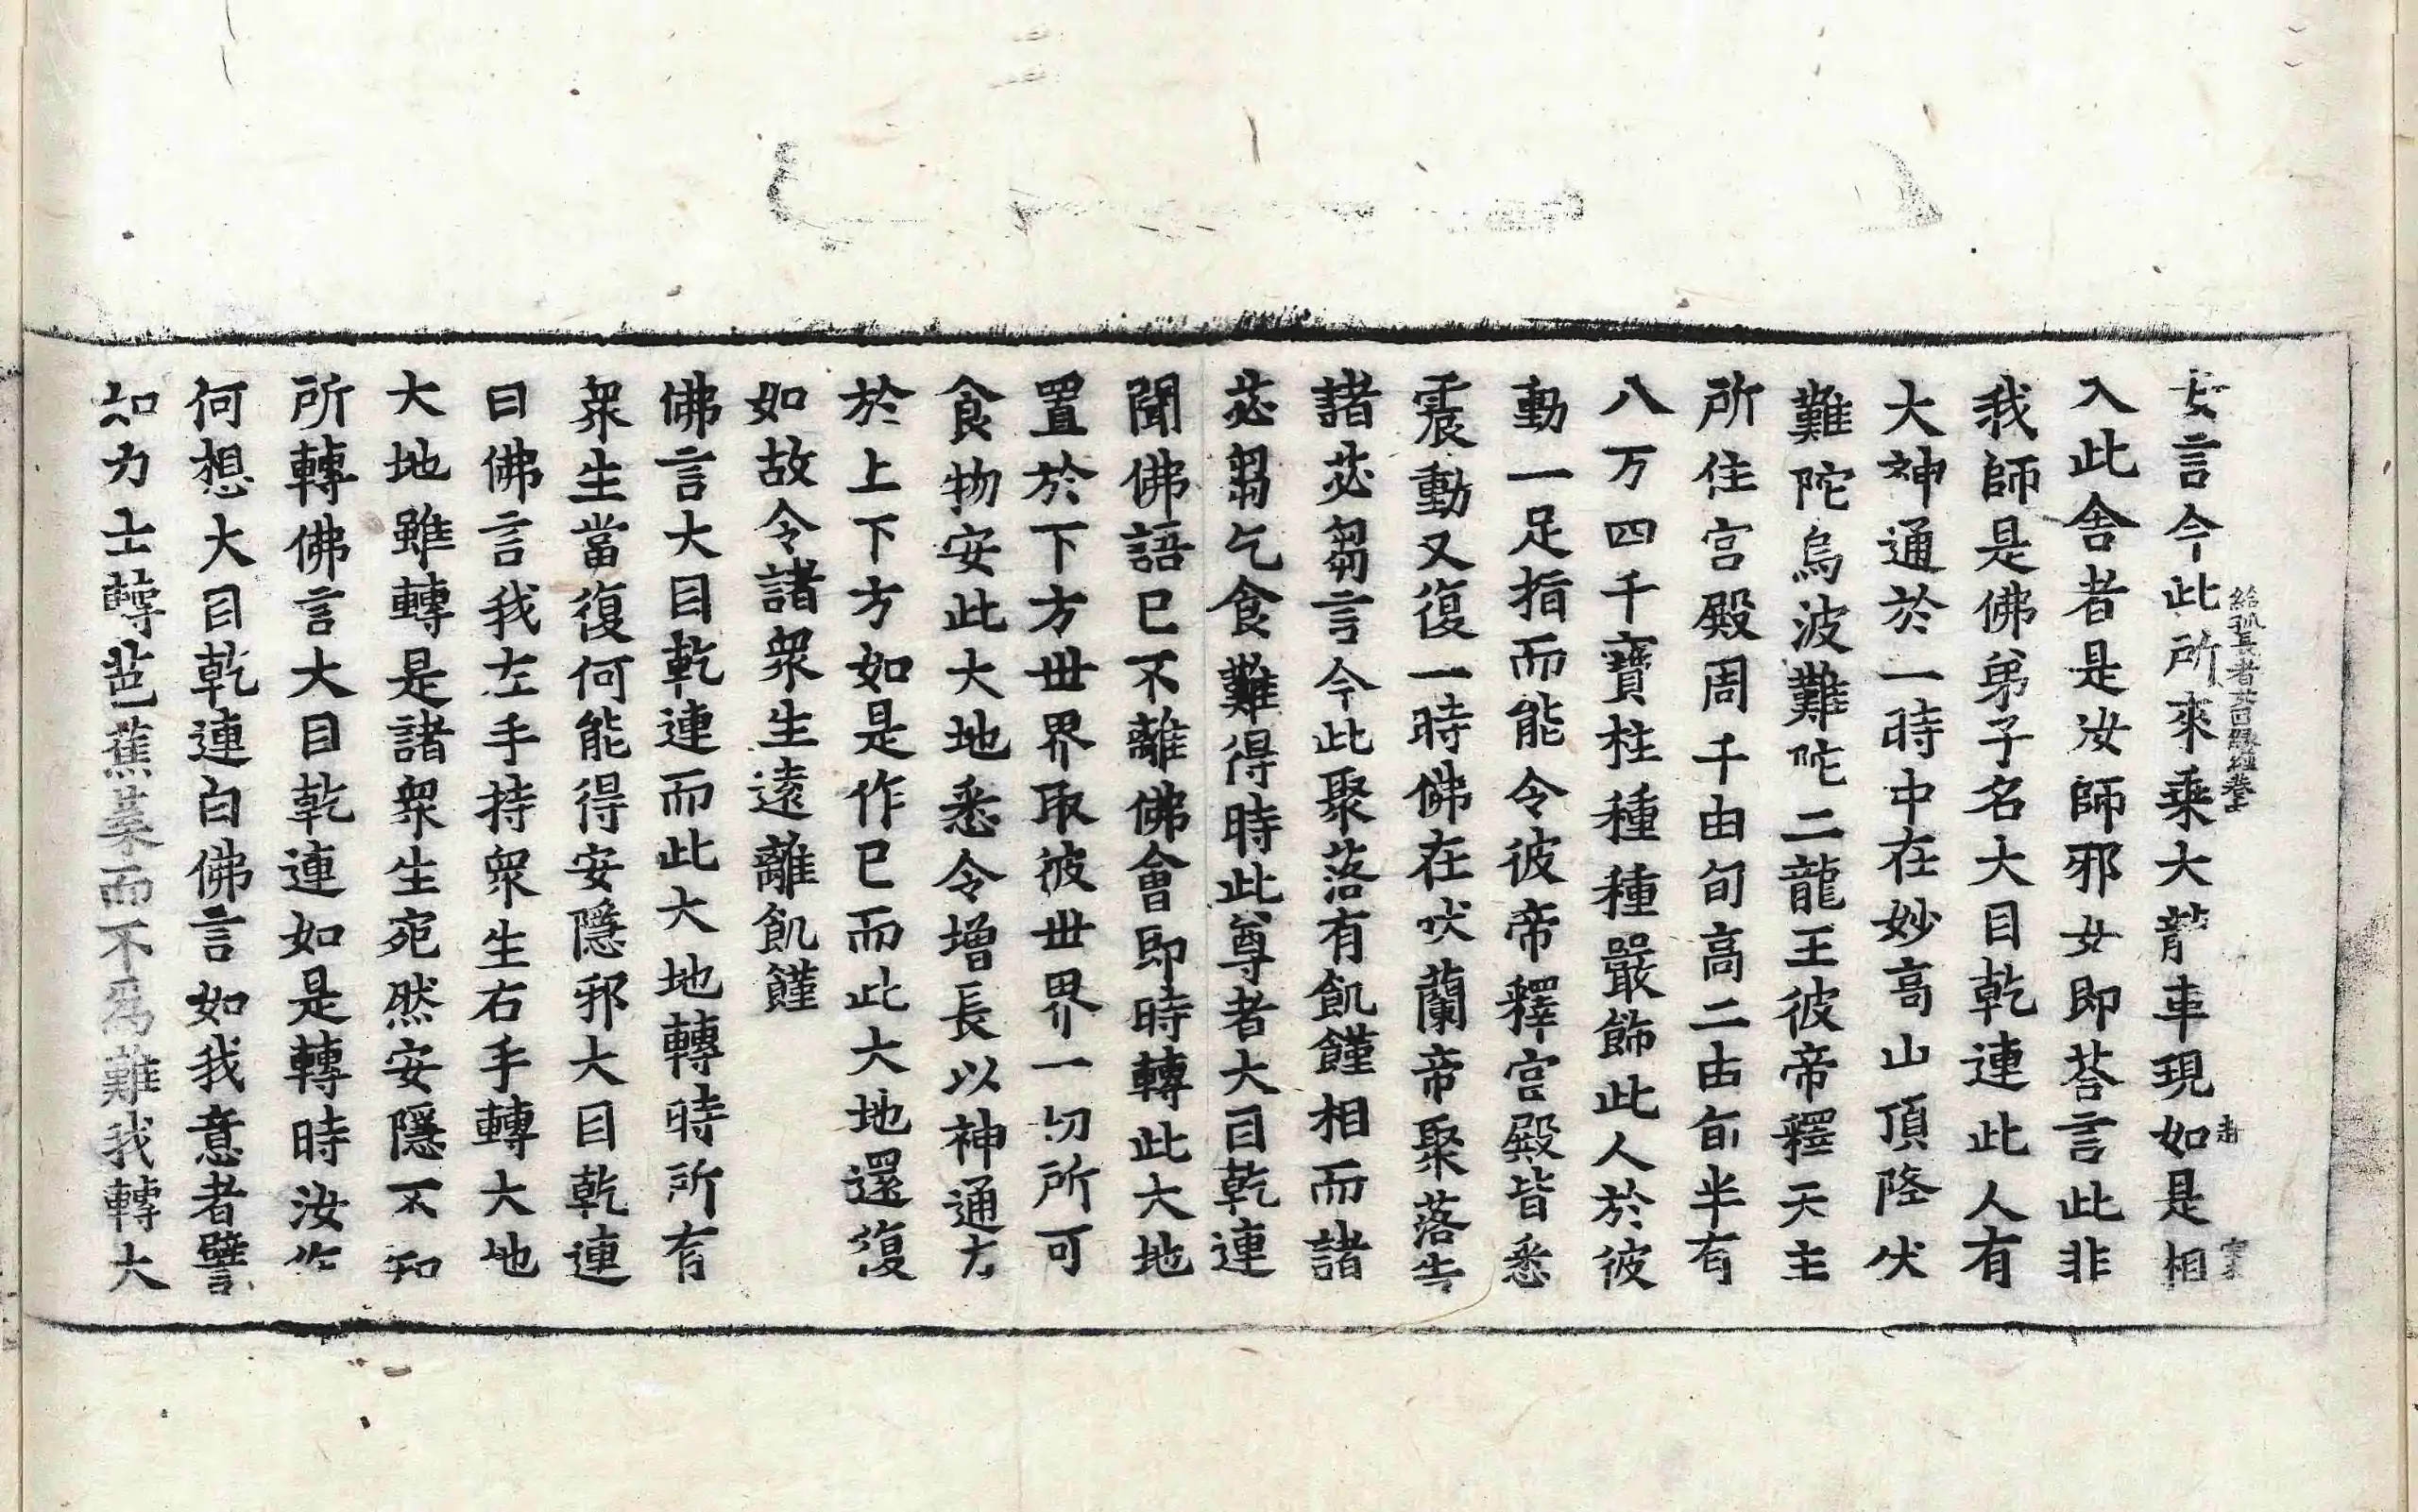 女言今此所來乘大青車現如是相
入此舍者是汝師邪女即荅言此非
我師是佛弟子名大目乾連此人有
大神通於一時中在妙高山頂降伏
難陀烏波難陀二龍王彼帝釋天主
所住宮殿周千由旬高二由旬半有
八万四千寶柱種種嚴飾此人於彼
動一足指而能令彼帝釋宮殿皆悉
震動又復一時佛在吠蘭帝聚落告
諸苾芻言今此聚落有飢饉相而諸
苾芻乞食難得時此尊者大目乾連
聞佛語已不離佛會即時轉此大地
置於下方世界取彼世界一切所可
食物安此大地悉令增長以神通力
於上下方如是作已而此大地還復
如故令諸衆生遠離飢饉
佛言大目乾連而此大地轉時所有
衆生當復何能得安隱邪大目乾連
曰佛言我左手持衆生右手轉大地
大地雖轉是諸衆生宛然安隱不知
所轉佛言大目乾連如是轉時汝作
何想大目乾連白佛言如我意者譬
如力士轉芭蕉葉而不爲難我轉大